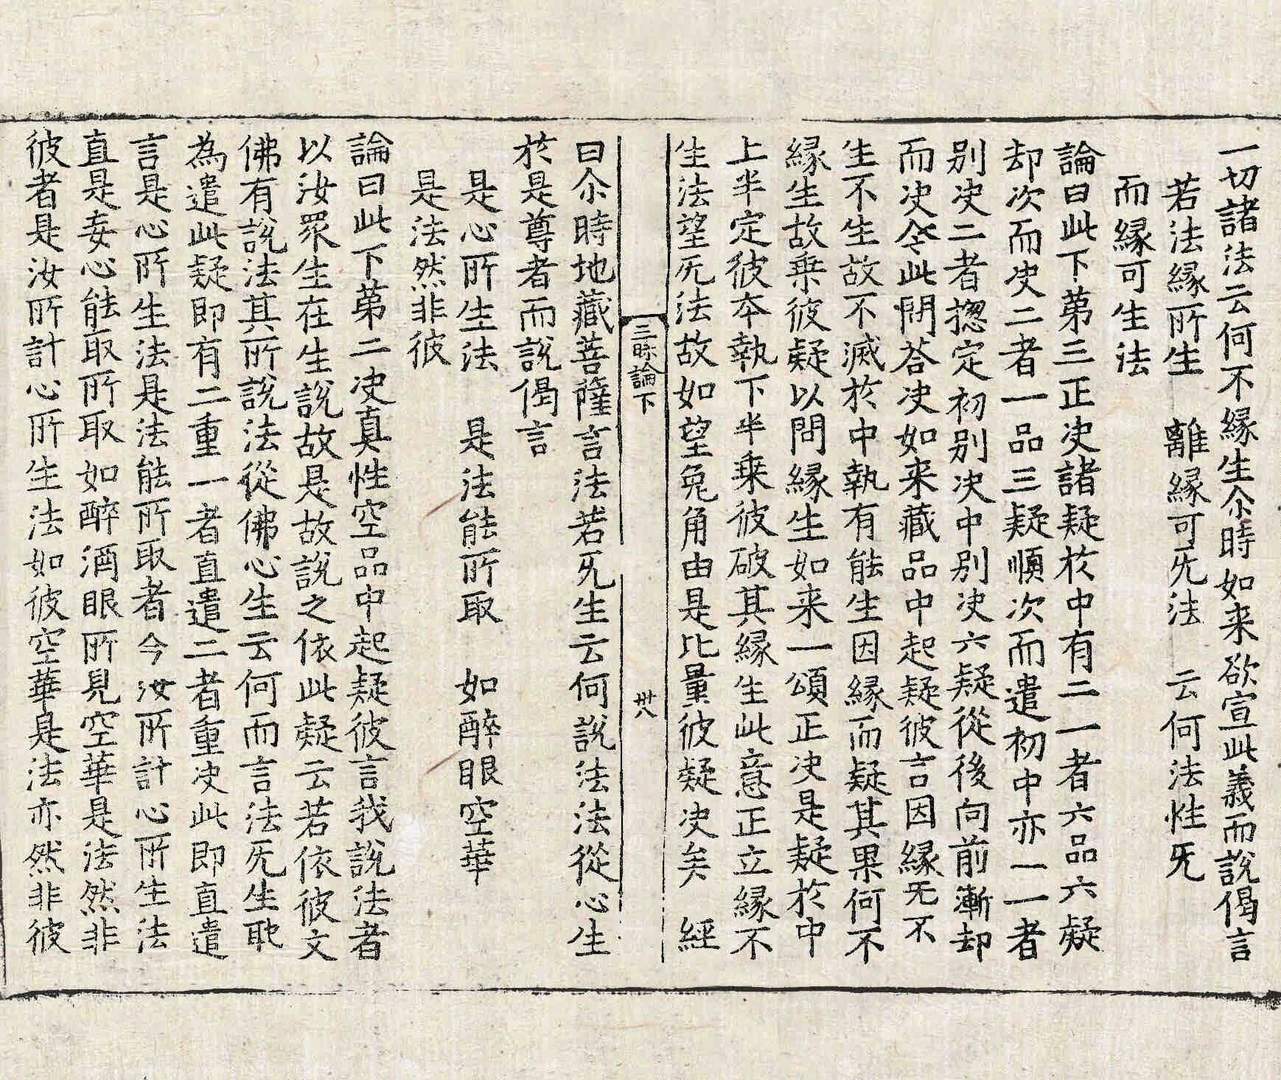 一切諸法云何不縁生尒時如来欲宣此義而說偈言
若法縁所生　離縁可旡法　云何法性旡
而縁可生法
論曰此下第三正决諸疑於中有二一者六品六疑
却次而决二者一品三疑順次而遣初中亦二一者
別决二者揔定初別决中別决六疑從後向前漸却
而决今此問荅决如来藏品中起疑彼言因縁旡不
生不生故不滅於中執有能生因縁而疑其果何不
縁生故乗彼疑以問縁生如来一頌正决是疑於中
上半定彼本執下半乗彼破其縁生此意正立縁不
生法望旡法故如望兔角由是比量彼疑决矣　經
三昧論下　卅八
曰尒時地藏菩薩言法若旡生云何說法法從心生
於是尊者而說偈言
是心所生法　是法能所取　如醉眼空華
是法然非彼
論曰此下第二决真性空品中起疑彼言我說法者
以汝眾生在生說故是故說之依此疑云若依彼文
佛有說法其所說法從佛心生云何而言法旡生耶
為遣此疑即有二重一者直遣二者重决此即直遣
言是心所生法是法能所取者今汝所計心所生法
直是妄心能取所取如醉酒眼所見空華是法然非
彼者是汝所計心所生法如彼空華是法亦然非彼